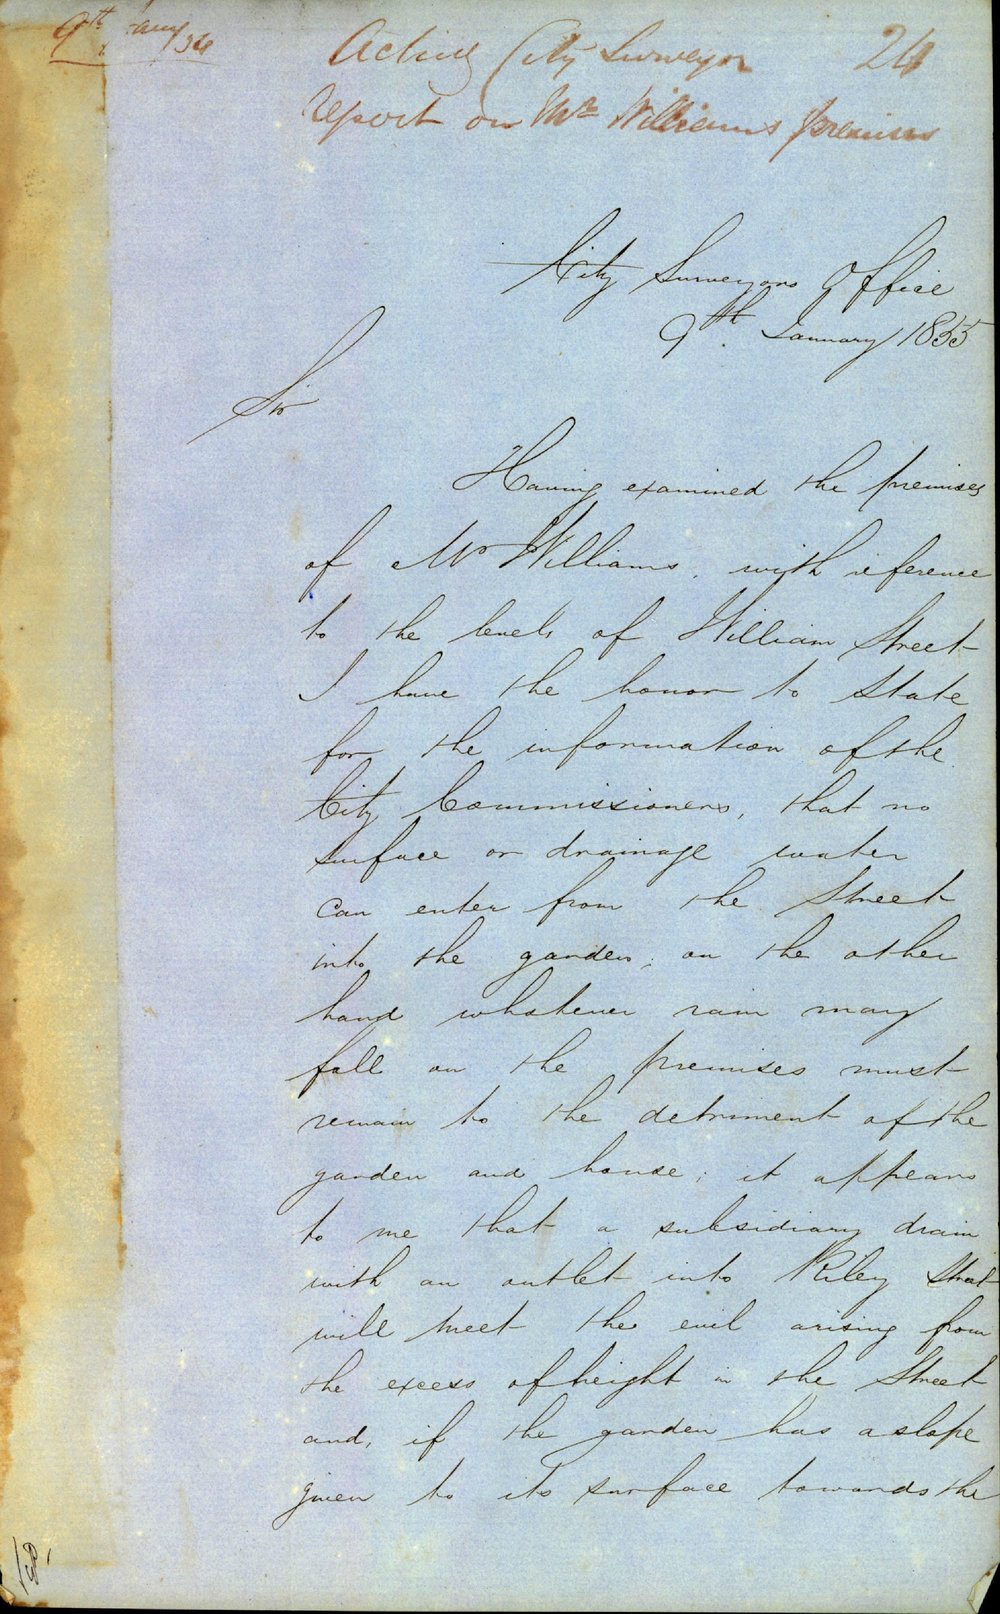 9th
Acting City Surveyor 24
report on Mr Williams premises
City Surveyors Office
9th January 1855
Sir
Having examined the premises
of Mr Williams, with reference
to the levels of William Street
I have the honor to State
for the information of the
City Commissioners, that no
surface or drainage water
can enter from the Street
into the garden; on the other
hand whatever rain may
fall on the premises must
remain to the detriment of the
garden and house; it appears
to me that a subsidiary drain
with an outlet into Riley Street
will meet the evil arising from
the excess of height in the Street
and, if the garden has a slope
given to its surface towards the